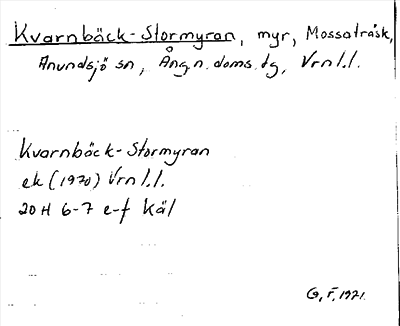 Kvarnbäck-Stormyran, myr, Mossaträsk,
Anundsjö sn, Ång.n.doms.tg, Vrnl.l.
Kvarnbäck-Stormyran
ek (1970) Vrnl.l.
20H 6-7 e-f Käl
G.F. 1971.